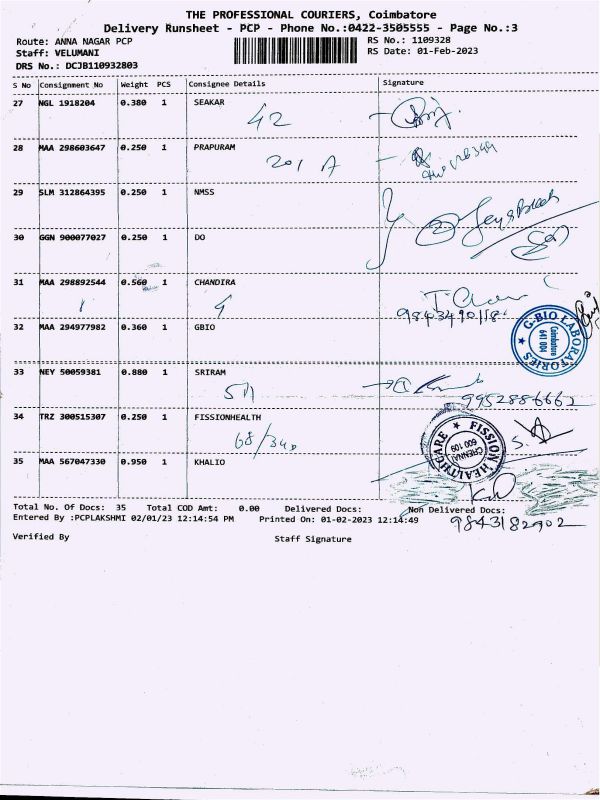 THE PROFESSIONAL COURIERS, Coimbatore
Delivery Runsheet - PCP - Phone No.:0422-3505555 - Page No.:3
Route: ANNA NAGAR PCP
Staff: VELUMANI
DRS No.: DCJB110932803
RS No.: 1109328
RS Date: 01-Feb-2023
S No Consignment No Weight PCS Consignee Details Signature
27 NGL 1918204 0.380 1 SEAKAR
42
28 MAA 298603647 0.250 1 PRAPURAM
201 A
29 SLM 312864395 0.250 1 NMSS
30 GGN 900077027 0.250 1 DO
31 MAA 298892544 0.560 1 CHANDIRA
9843490118
32 MAA 294977982 0.360 1 GBIO
G-BIO LABORATORIES
Coimbatore
641 004
33 NEY 50059381 0.880 1 SRIRAM
9952886662
34 TRZ 300515307 0.250 1 FISSIONHEALTH
68/340
FISSION HEALTHCARE
CHENNAI
600 109
35 MAA 567047330 0.950 1 KHALIO
Total No. Of Docs: 35 Total COD Amt: 0.00 Delivered Docs: Non Delivered Docs:
Entered By :PCPLAKSHMI 02/01/23 12:14:54 PM Printed On: 01-02-2023 12:14:49
9843182902
Verified By Staff Signature